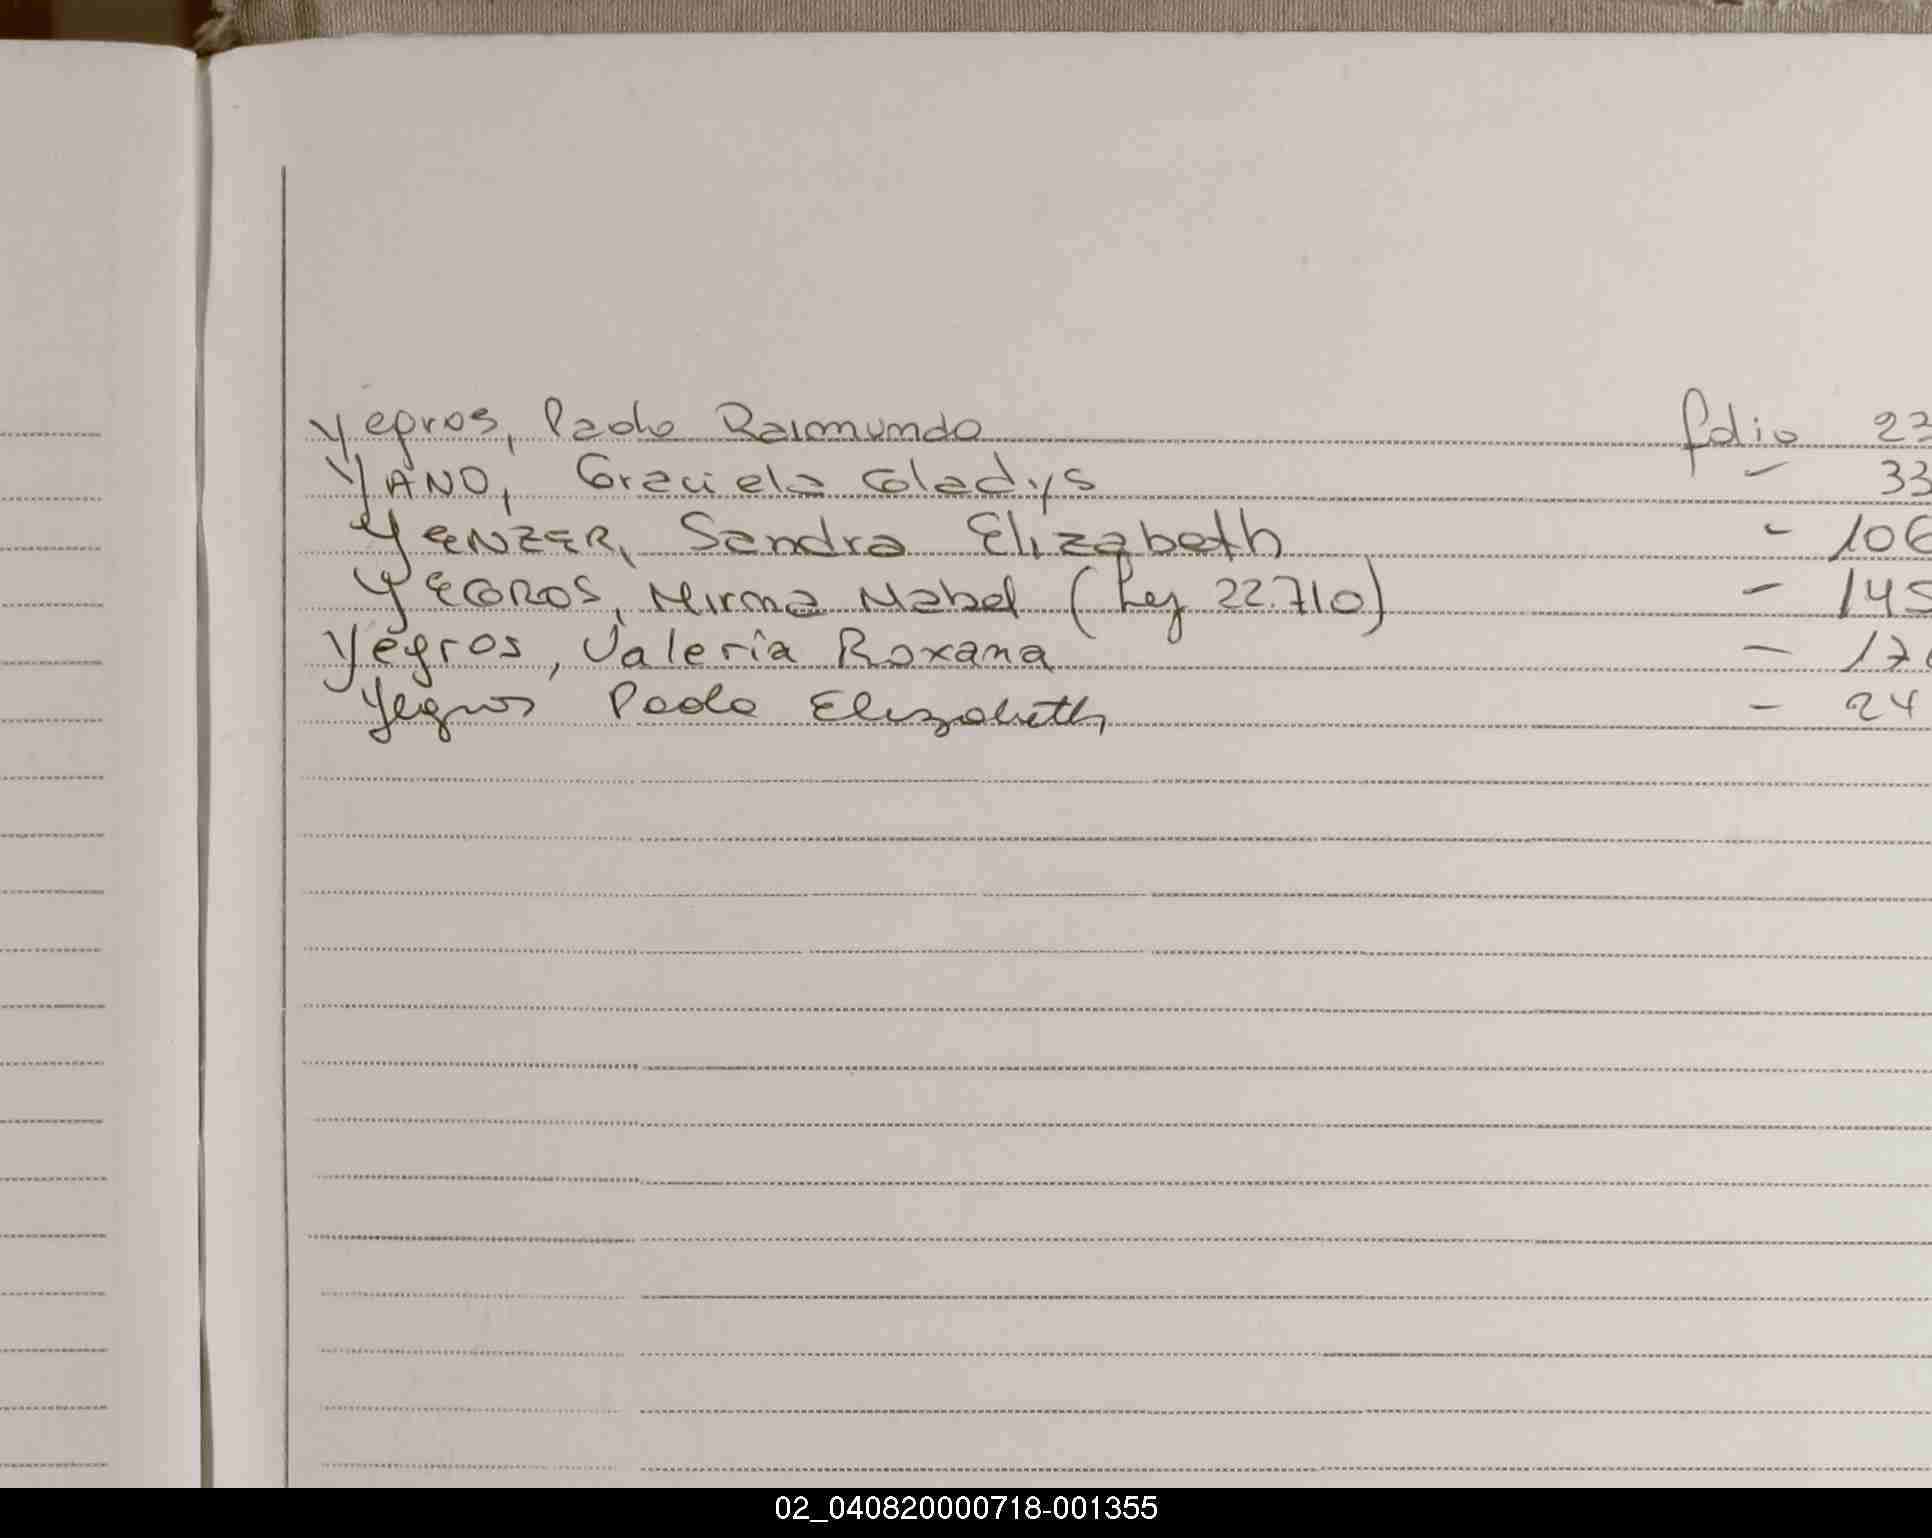 Yegros, Pablo Raimundo folio 23
YANO, Graciela Gladys - 33
YENZER, Sandra Elizabeth - 106
YEGROS, Mirma Mabel (Ley 22.710) - 145
Yegros, Valeria Roxana - 17
Yegros Paola Elizabeth - 24
02_040820000718-001355